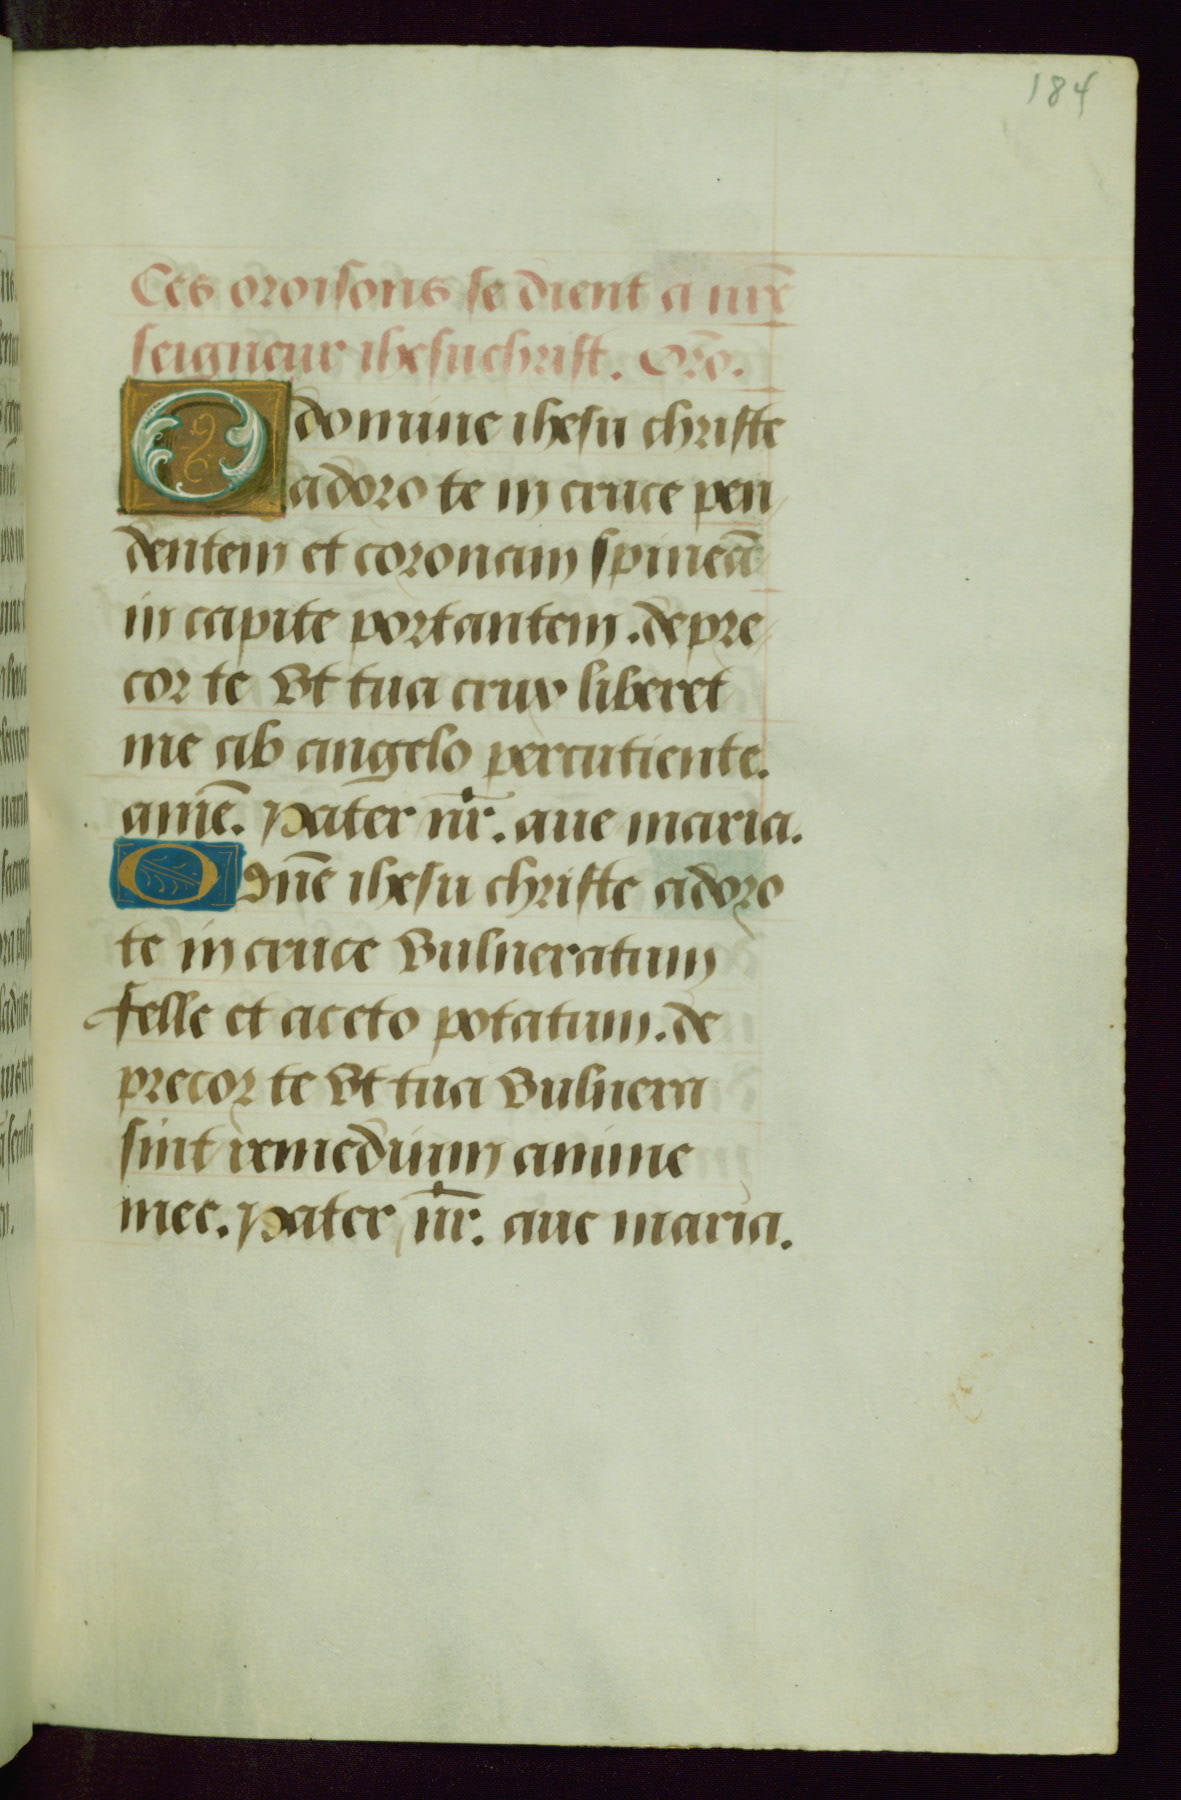 184
Ces oroisons se dient a nr̄e
seigneur ihesuchrist. Orō.
O domine ihesu christe
adoro te in cruce pen
dentem et coronam spineā
in capite portantem. depre
cor te vt tua crux liberet
me ab angelo percutiente.
amē. Pater nr̄. aue maria.
O dn̄e ihesu christe adoro
te in cruce vulneratum
felle et aceto potatum. de
precor te vt tua vulnera
sint remedium anime
mee. Pater nr̄. aue maria.